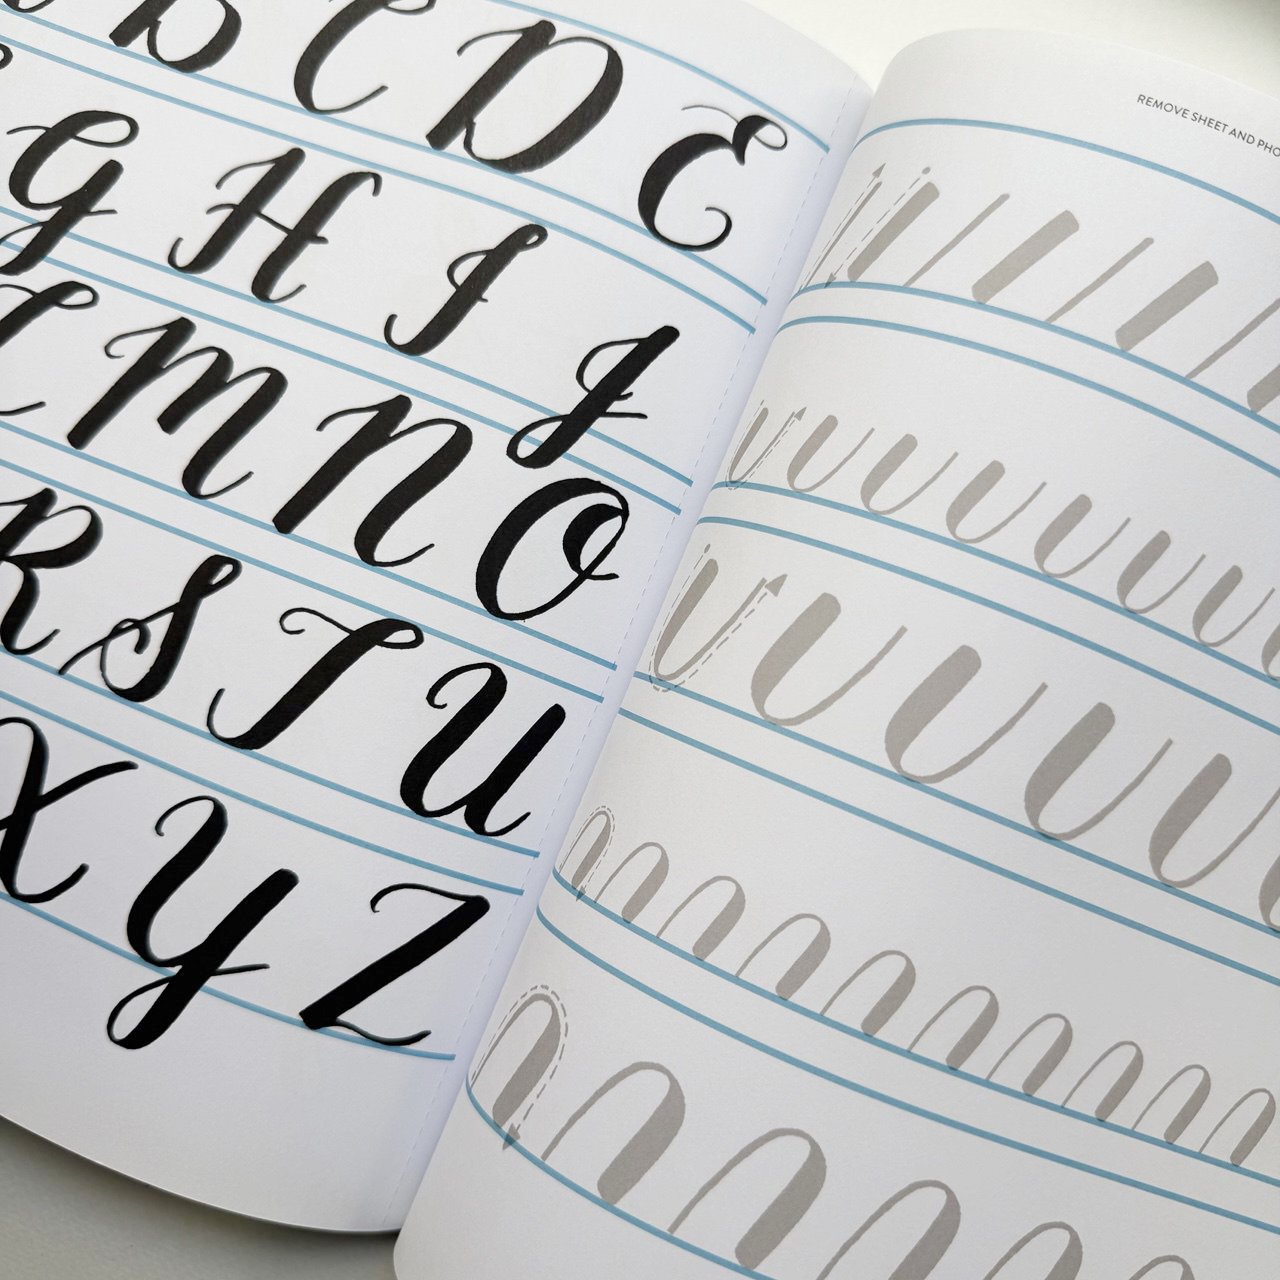 B C D E
G H I J
M N O
R S T U
X Y Z
REMOVE SHEET AND PHO